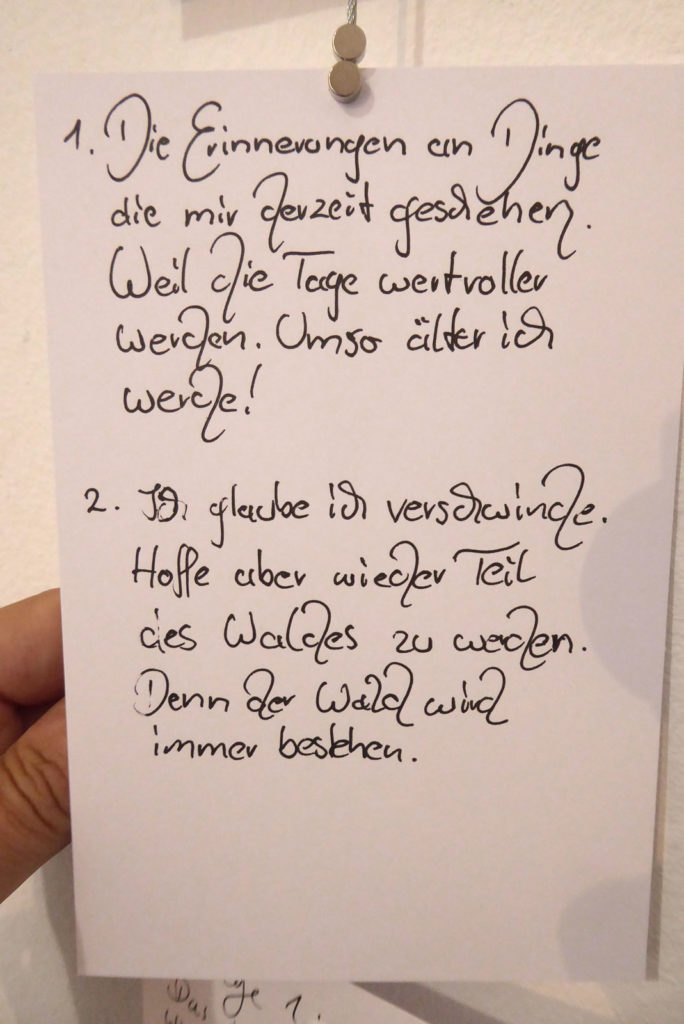 1. Die Erinnerungen an Dinge
die mir derzeit geschehen.
Weil die Tage wertvoller
werden. Umso älter ich
werde!
2. Ich glaube ich verschwinde.
Hoffe aber wieder Teil
des Waldes zu werden.
Denn der Wald wird
immer bestehen.
Das
1.